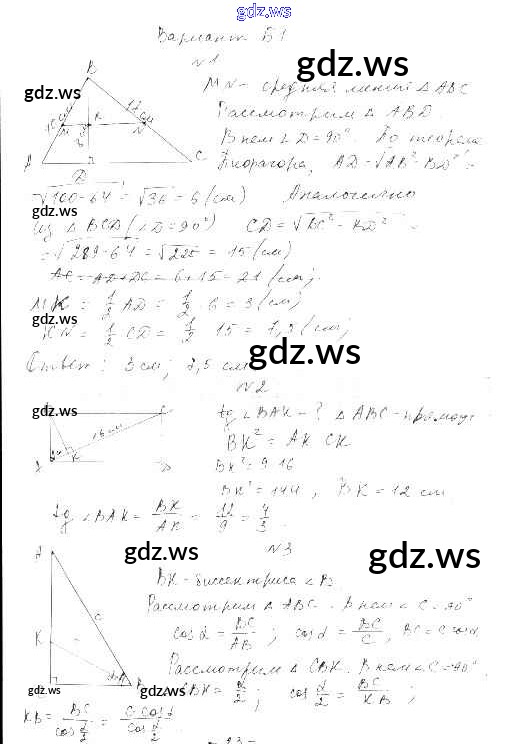 gdz.ws
Вариант Б1
№1
gdz.ws
gdz.ws
MN – средняя линия △ ABC
Рассмотрим △ ABD.
В нем ∠D = 90°. По теореме
Пифагора, AD = √AB² - BD² =
B
10 см
17 см
M
K
N
A
D
C
gdz.ws
√100-64 = √36 = 6 (см) Аналогично
△ BCD (∠D=90°) CD = √BC² - BD² =
= √289-64 = √225 = 15 (см)
AC = AD+DC = 6+15 = 21 (см);
MK = 1/2 AD = 1/2 · 6 = 3 (см)
gdz.ws
KN = 1/2 CD = 1/2 · 15 = 7,5 (см);
gdz.ws
Ответ: 3 см; 7,5 см
№2
gdz.ws
tg ∠BAK - ? △ ABC - прямоуг.
16 см
K
BK² = AK · CK
gdz.ws
BK² = 9 · 16
BK² = 144, BK = 12 см.
tg ∠BAK = BK/AK = 12/9 = 4/3.
gdz.ws
gdz.ws
№3
A
K
c
BK - биссектриса ∠B
Рассмотрим △ ABC. В нем ∠C = 90°
cos α = BC/AB; cos α = BC/c, BC = c cos α
Рассмотрим △ CBK. В нем ∠C = 90°
gdz.ws
gdz.ws
∠CBK = α/2; cos α/2 = BC/KB;
KB = BC/cos α/2 = c · cos α/cos α/2
gdz.ws
- 23 -